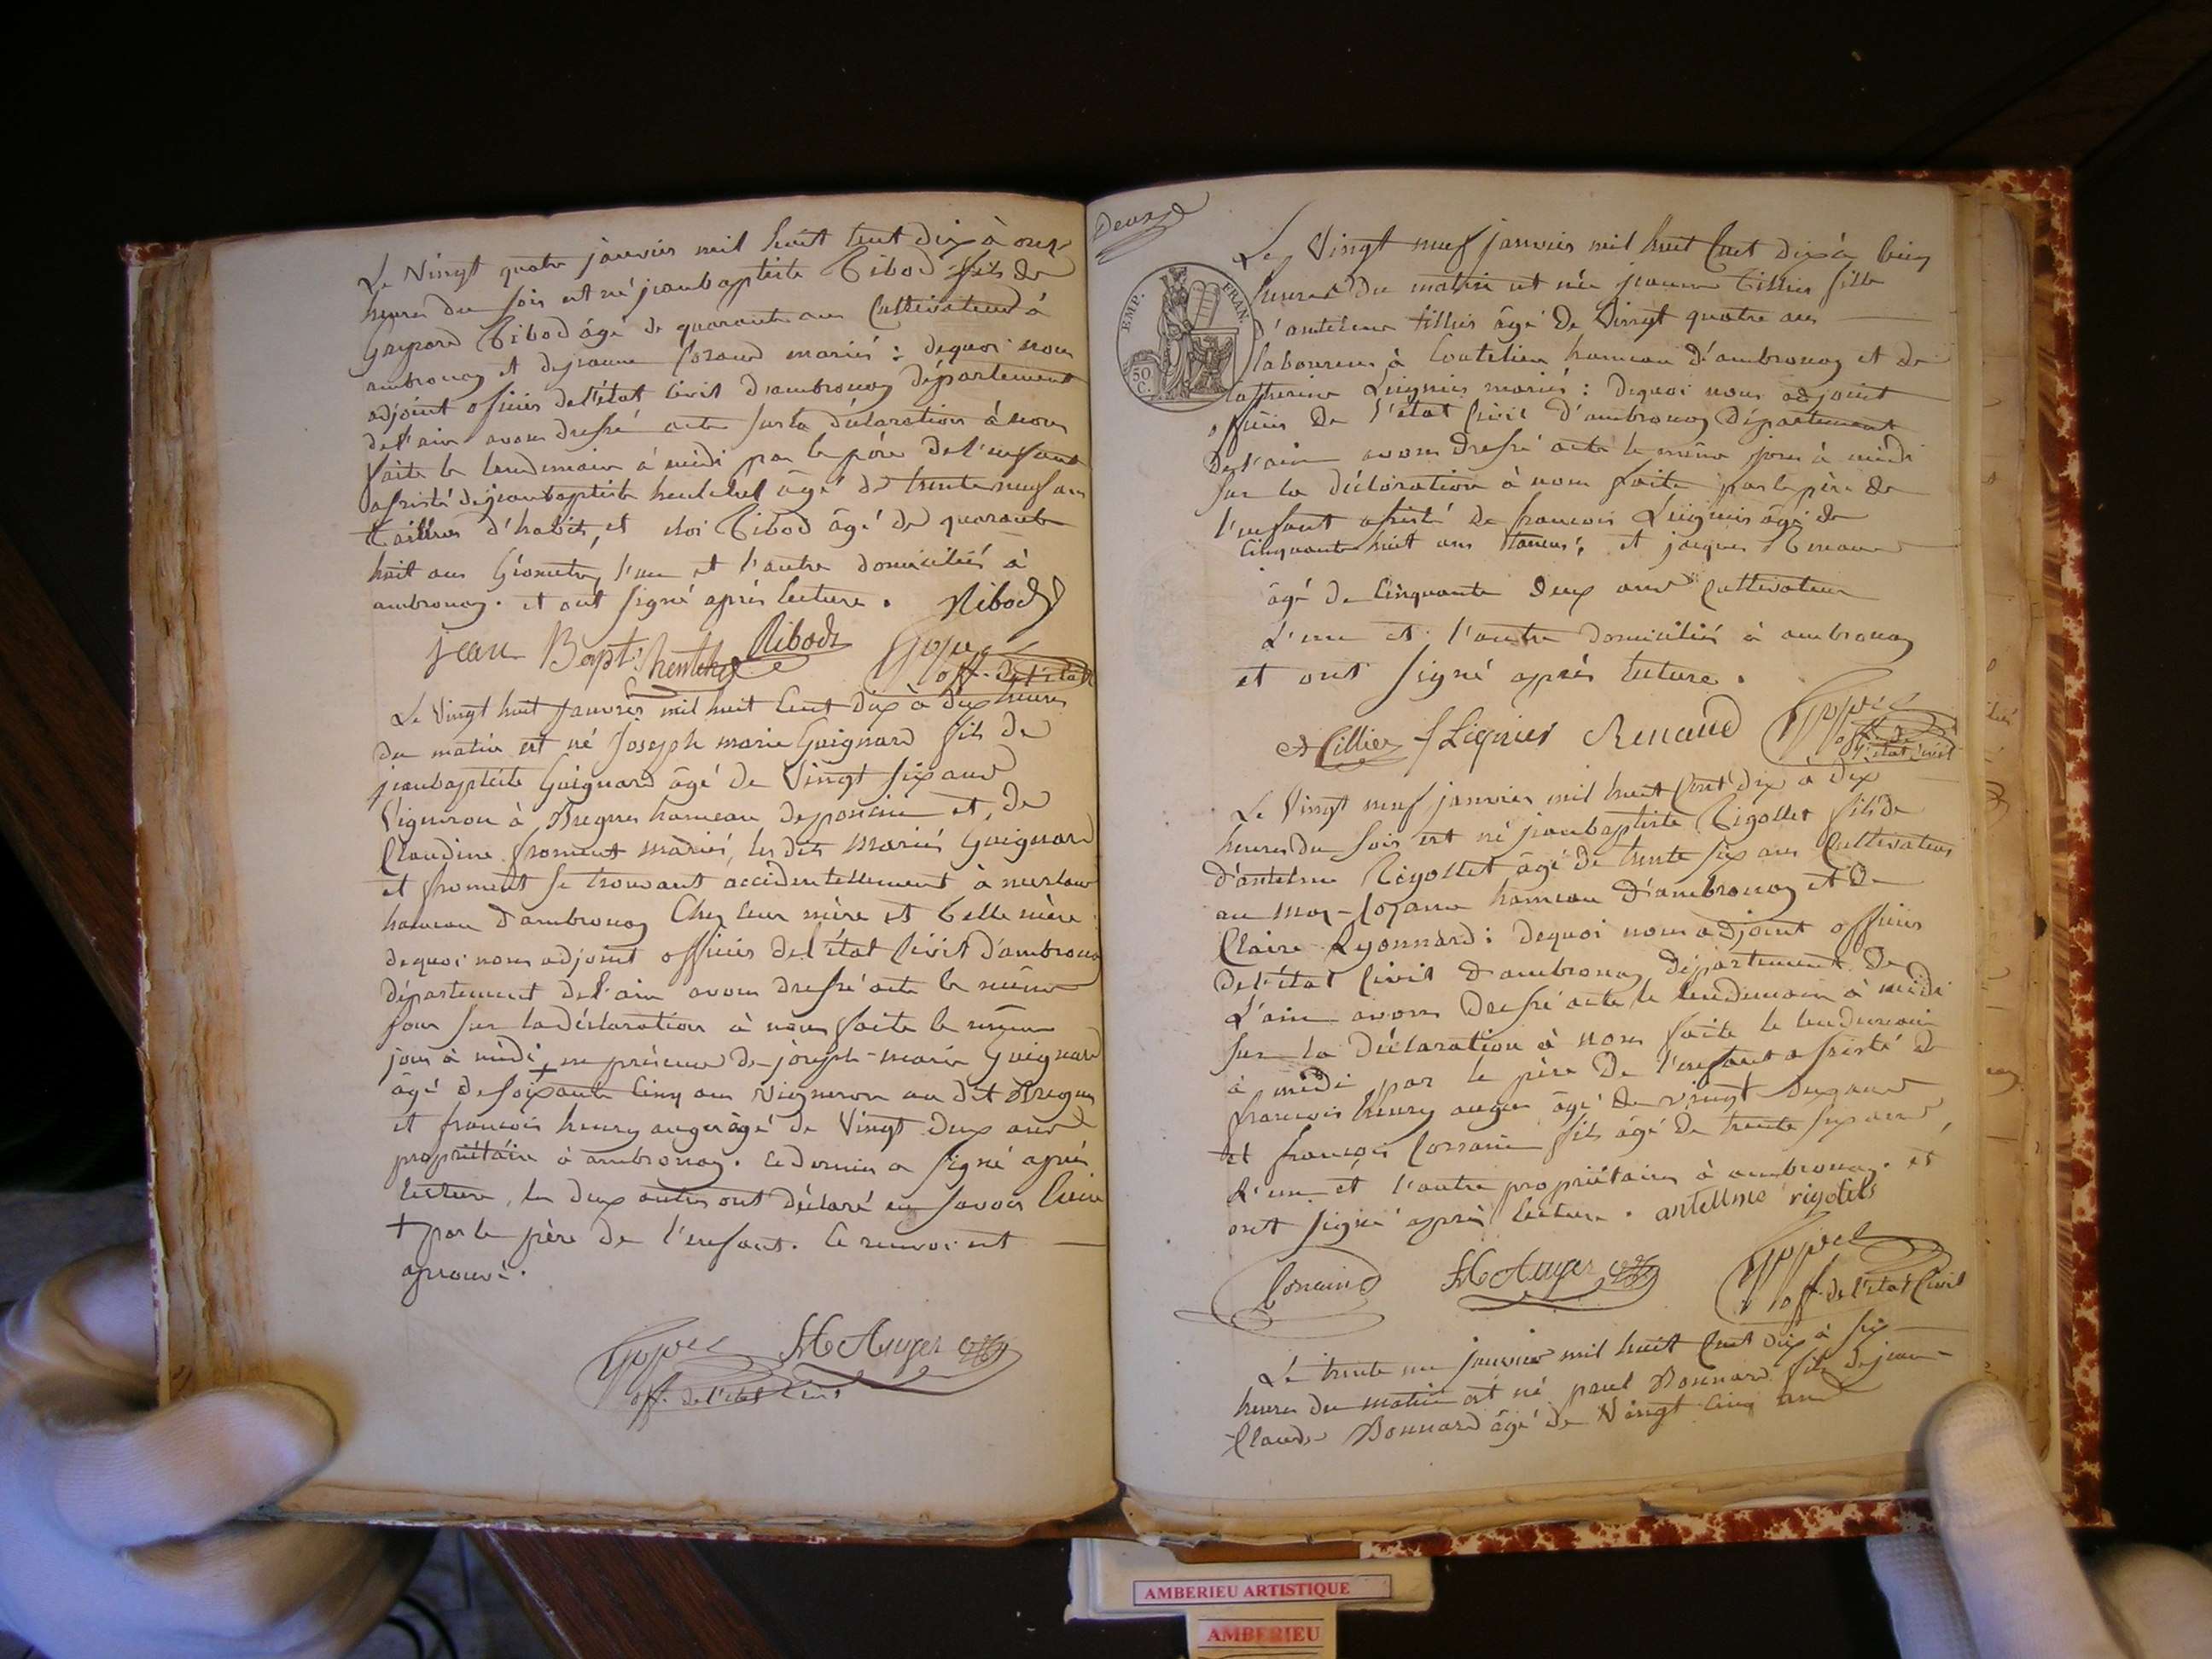 Le Vingt quatre janvier mil huit Cent dix à onze
heures du soir est né jeanbaptiste Ribod fils de
Gaspard Ribod âgé de quarante ans Cultivateur à
ambronay et de jeanne mariés : dequoi nous
adjoint officier de l'état Civil d'ambronay département
de l'ain avons dressé acte sur la déclaration à nous
faite le lendemain à midi par le père de l'enfant
assisté de jeanbaptiste âgé de trente neuf ans
tailleur d'habits, et eloi Ribod âgé de quarante
huit ans Géometre, l'un et l'autre domiciliés à
ambronay. et ont signé après lecture . Ribod
jean Bapt. Ribod
off. de l'état
Le Vingt huit Janvier mil huit Cent dix à dix heures
du matin est né Joseph marie Guignard fils de
jeanbaptiste Guignard âgé de Vingt six ans
Vigneron à hameau de poncin et de
Claudine froment mariés, les dits mariés Guignard
et froment se trouvant accidentellement à
hameau d'ambronay Chez leur mère et belle mère :
dequoi nous adjoint officier de l'état Civil d'ambronay
département de l'ain avons dressé acte le même
jour sur la déclaration à nous faite le même
jour à midi + en présence de joseph-marie Guignard
âgé de soixante Cinq ans Vigneron au dit
et francois henry auger âgé de Vingt deux ans
propriétaire à ambronay. Ce dernier a signé après
lecture, les deux autres ont déclaré ne savoir Ecrire
+ par le père de l'enfant. Ce renvoi est
aprouvé.
H Auger
off. de l'état Civil
Deux
EMP. FRAN.
50 C.
Le Vingt neuf janvier mil huit Cent dix à Cinq
heures du matin est née jeanne tillier fille
d'antelme tillier âgé de Vingt quatre ans
laboureur à Coutelieu hameau d'ambronay et de
Catherine Lignier mariés : dequoi nous adjoint
officier de l'état Civil d'ambronay Département
de l'ain avons dressé acte le même jour à midi
sur la déclaration à nous faite par le père de
l'enfant assisté de francois Lignier âgé de
Cinquante huit ans et jacques Renaud
âgé de Cinquante deux ans Cultivateur
L'un et l'autre domiciliés à ambronay
et ont signé après lecture .
A Tillier f Lignier Renaud
off. de
l'état Civil
Le Vingt neuf janvier mil huit Cent dix à dix
heures du soir est né jeanbaptiste Rigollet fils de
d'antelme Rigollet âgé de trente six ans Cultivateur
au hameau d'ambronay et de
Claire Lyonnard : dequoi nous adjoint officier
de l'état Civil d'ambronay département de
L'ain avons dressé acte le lendemain à midi
sur la déclaration à nous faite le lendemain
à midi par le père de l'enfant assisté de
francois henry auger âgé de vingt deux ans
et francois Lorrain fils âgé de trente six ans
L'un et l'autre propriétaires à ambronay. et
ont signé après lecture . antellme rigolets
Lorrain H Auger
off. de l'état Civil
Le trente un janvier mil huit Cent dix à six
heures du matin est né paul Bonnard fils de jean-
Claude Bonnard âgé de Vingt Cinq ans
AMBERIEU ARTISTIQUE
AMBERIEU